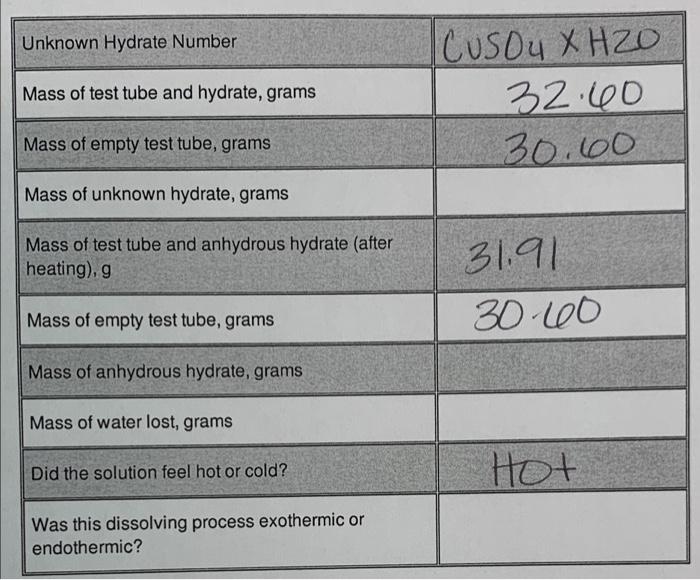 Unknown Hydrate Number
CuSO4 X H2O
Mass of test tube and hydrate, grams
32.60
Mass of empty test tube, grams
30.60
Mass of unknown hydrate, grams
Mass of test tube and anhydrous hydrate (after
heating), g
31.91
Mass of empty test tube, grams
30.60
Mass of anhydrous hydrate, grams
Mass of water lost, grams
Did the solution feel hot or cold?
Hot
Was this dissolving process exothermic or
endothermic?